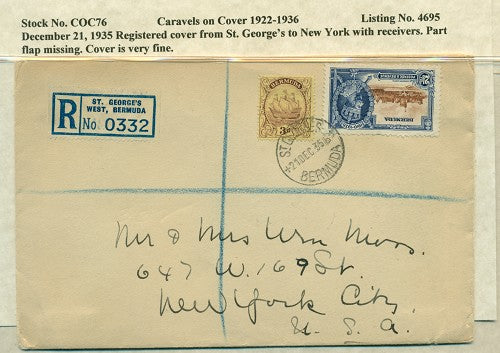 Stock No. COC76 Caravels on Cover 1922-1936 Listing No. 4695
December 21, 1935 Registered cover from St. George's to New York with receivers. Part
flap missing. Cover is very fine.
R
ST. GEORGE'S
WEST, BERMUDA
No. 0332
BERMUDA
3d
BERMUDA
21 DEC 35
BERMUDA
Mr & Mrs Wm Moss.
647 W. 169 St.
New York City.
U. S. A.